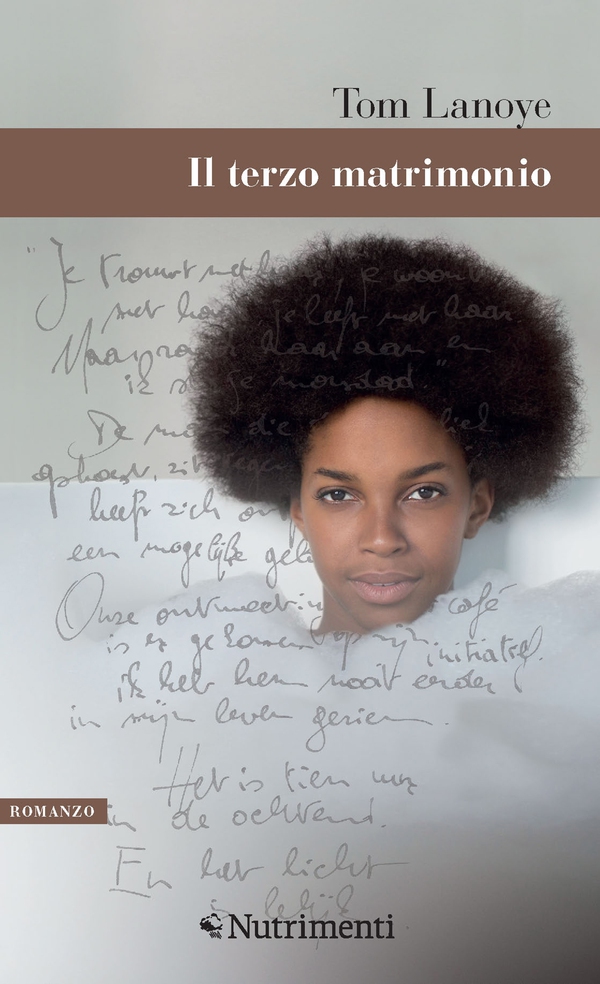 Tom Lanoye
Il terzo matrimonio
"Je trouwt met haar, je woont
met haar, je leeft met haar
Maar raak haar aan en
ik sla je morsdood."
De man die
ophoest, zit tegen
heeft zich
een mogelijke
Onze ontmoeting café
is er gekomen op zijn initiatief.
ik heb hem nooit eerder
in mijn leven gezien.
Het is tien uur
in de ochtend.
En het licht
is lelijk
ROMANZO
Nutrimenti